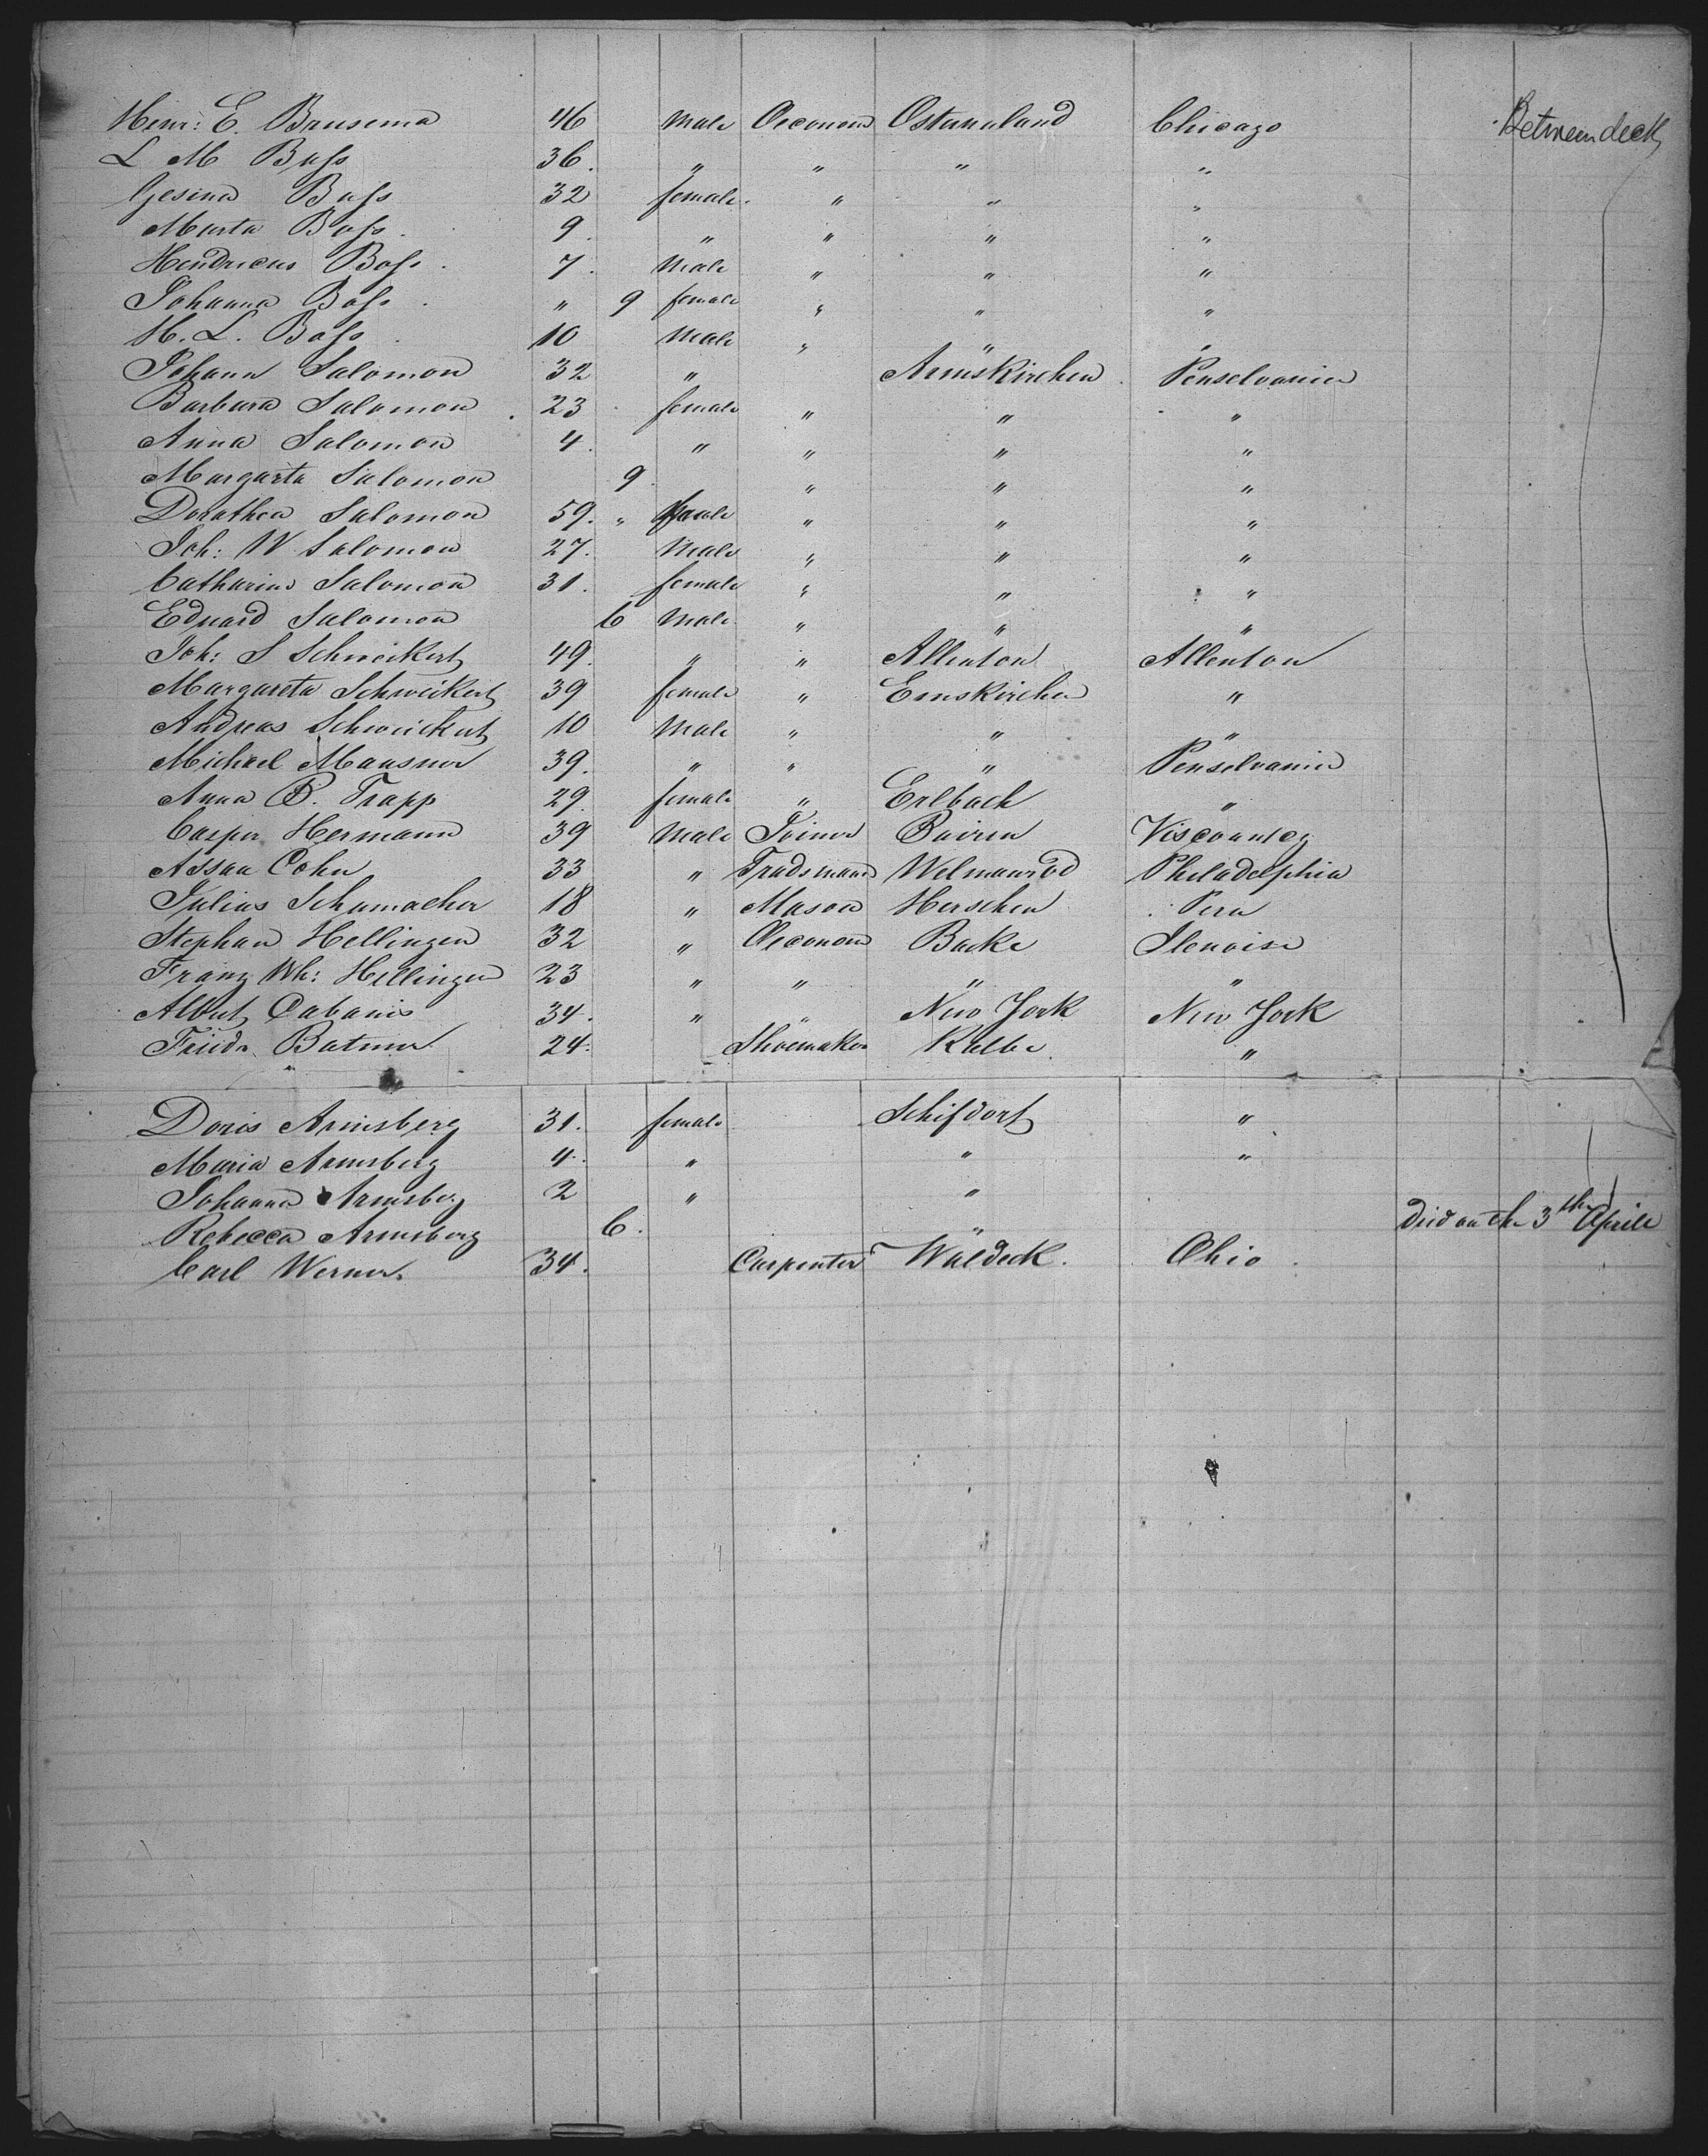 Henr: E. Brusema 46 Male Oeconom Chicago Betweendeck
L M Bass 36. " " " "
Gesina Bass 32 female. " " "
Marta Bass. 9. " " " "
Hendricus Bass. 7. Male " " "
Johanna Bass. " 9 female " " "
H. L. Bass. 10 Male " " "
Johann Salomon 32 " Armskirchen. Penselvanien
Barbara Salomon. 23 female " " "
Anna Salomon 4. " " " "
Margarta Salomon 9. " " "
Dorathea Salomon 59. " female " " "
Joh: W Salomon 27. Male " " "
Catharina Salomon 31. female " " "
Eduard Salomon 6 Male " " "
Joh: S Schweikert 49. " " Allenton Allenton
Margareta Schweikert 39 female " Emskirchen "
Andreas Schweickert 10 Male " " "
Michael Mausner 39. " " " Penselvanien
Anna B. Trapp 29. female " Erlbach "
Casper Hermann 39 Male Joiner Bairen
Assaa Cohn 33 " Tradsmann Philadelphia
Julius Schumacher 18 " Mason Herschen Peru
Stephan Hellingen 32 " Oeconom Backe Ilenoise
Franz Wh: Hellingen 23 " " " "
Albert Cabanis 34. " " New York New York
Frieda 24. Shoemaker Kalbe "
Doris Arnsberg 31. female Schifdorf "
Maria Arnsberg 4. " " "
Johanna Arnsberg 2 " "
Rebecca Arnsberg 6. " Died on the 3th Aprile
Carl Werner. 34. Carpenter Waldeck. Ohio.